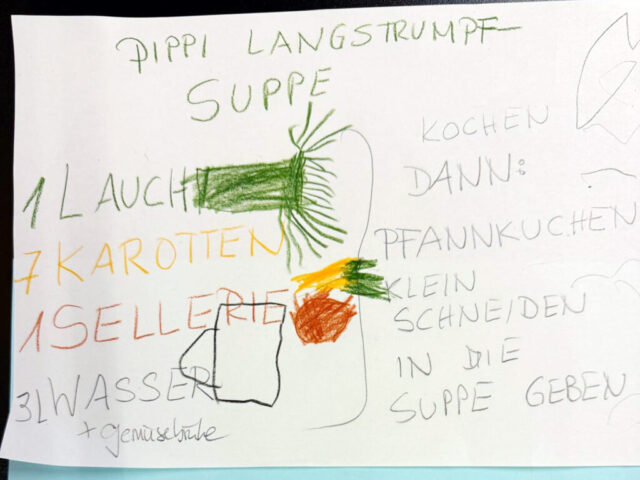 PIPPI LANGSTRUMPF
SUPPE
1 LAUCH
7 KAROTTEN
1 SELLERIE
3L WASSER
+ Gemüsebrühe
KOCHEN
DANN:
PFANNKUCHEN
KLEIN
SCHNEIDEN
IN DIE
SUPPE GEBEN